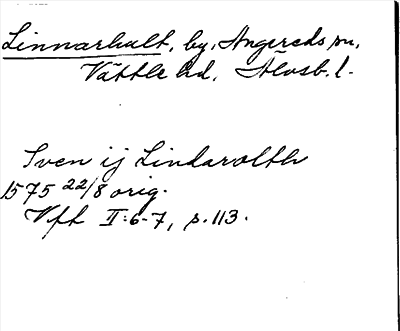 Linnarhult, by, Angereds sn,
Vättle hd, Älvsb. l.
Sven ij Lindarolth
1575 22/8 orig.
Vfh II:6-7, s. 113.